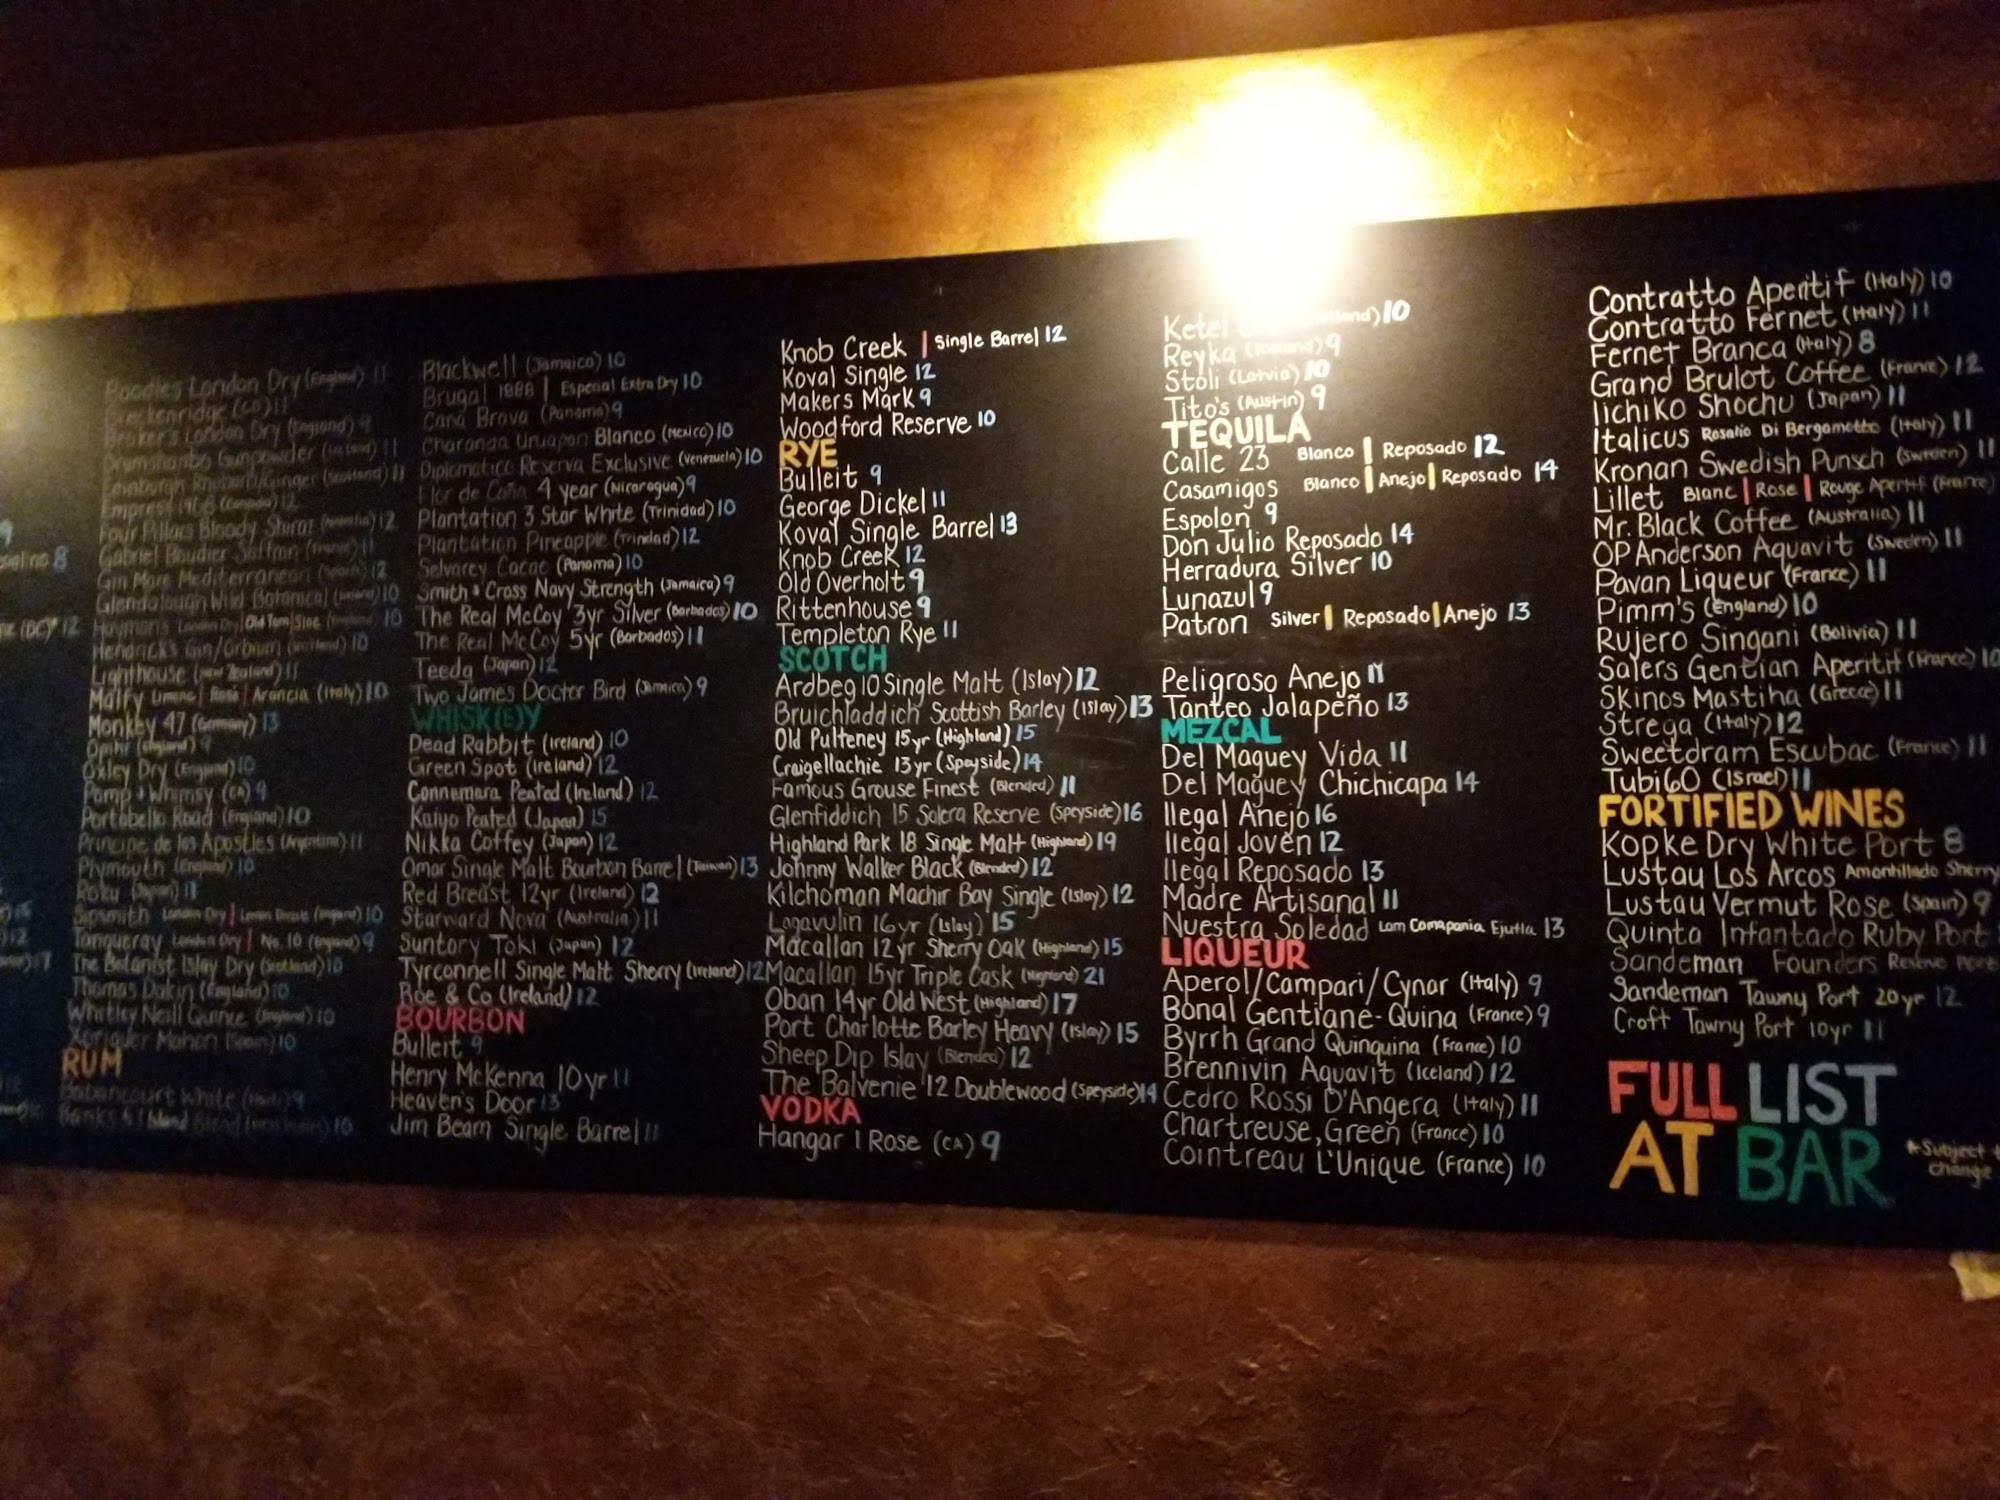 9
8
(DC) 12
Boodles London Dry (England) 11
Breckenridge (CO) 11
Broker's London Dry (England) 9
Drumshanbo Gunpowder (Ireland) 11
Edinburgh Rhubarb/Ginger (Scotland) 11
Empress 1908 (Canada) 12
Four Pillars Bloody Shiraz (Australia) 12
Gabriel Boudier Saffron (France) 11
Gin Mare Mediterranean (Spain) 12
Glendalough Wild Botanical (Ireland) 10
Hayman's London Dry | Old Tom | Sloe (England) 10
Hendrick's Gin/Orbium (Scotland) 10
Lighthouse (New Zealand) 11
Malfy Limone | Rosa | Arancia (Italy) 10
Monkey 47 (Germany) 13
Opihr (England) 9
Oxley Dry (England) 10
Pomp & Whimsy (CA) 9
Portobello Road (England) 10
Principe de los Apostles (Argentina) 11
Plymouth (England) 10
Roku (Japan) 11
Sipsmith London Dry | Lemon Drizzle (England) 10
Tanqueray London Dry | No. 10 (England) 9
The Botanist Islay Dry (Scotland) 10
Thomas Dakin (England) 10
Whitley Neill Quince (England) 10
Xoriguer Mahon (Spain) 10
RUM
Babancourt White (Haiti) 9
Banks 5 Island Blend 10
Blackwell (Jamaica) 10
Brugal 1888 | Especial Extra Dry 10
Caña Brava (Panama) 9
Charanda Uruapan Blanco (Mexico) 10
Diplomatico Reserva Exclusive (Venezuela) 10
Flor de Caña 4 year (Nicaragua) 9
Plantation 3 Star White (Trinidad) 10
Plantation Pineapple (Trinidad) 12
Selvarey Cacao (Panama) 10
Smith & Cross Navy Strength (Jamaica) 9
The Real McCoy 3yr Silver (Barbados) 10
The Real McCoy 5yr (Barbados) 11
Teeda (Japan) 12
Two James Doctor Bird (Jamaica) 9
WHISK(E)Y
Dead Rabbit (Ireland) 10
Green Spot (Ireland) 12
Connemara Peated (Ireland) 12
Kaiyo Peated (Japan) 15
Nikka Coffey (Japan) 12
Omar Single Malt Bourbon Barrel (Taiwan) 13
Red Breast 12yr (Ireland) 12
Starward Nova (Australia) 11
Suntory Toki (Japan) 12
Tyrconnell Single Malt Sherry (Ireland) 12
Roe & Co (Ireland) 12
BOURBON
Bulleit 9
Henry McKenna 10yr 11
Heaven's Door 13
Jim Beam Single Barrel 11
Knob Creek | Single Barrel 12
Koval Single 12
Makers Mark 9
Woodford Reserve 10
RYE
Bulleit 9
George Dickel 11
Koval Single Barrel 13
Knob Creek 12
Old Overholt 9
Rittenhouse 9
Templeton Rye 11
SCOTCH
Ardbeg 10 Single Malt (Islay) 12
Bruichladdich Scottish Barley (Islay) 13
Old Pulteney 15yr (Highland) 15
Craigellachie 13yr (Speyside) 14
Famous Grouse Finest (Blended) 11
Glenfiddich 15 Solera Reserve (Speyside) 16
Highland Park 18 Single Malt (Highland) 19
Johnny Walker Black (Blended) 12
Kilchoman Machir Bay Single (Islay) 12
Lagavulin 16yr (Islay) 15
Macallan 12yr Sherry Oak (Highland) 15
Macallan 15yr Triple Cask (Highland) 21
Oban 14yr Old West (Highland) 17
Port Charlotte Barley Heavy (Islay) 15
Sheep Dip Islay (Blended) 12
The Balvenie 12 Doublewood (Speyside) 14
VODKA
Hangar 1 Rose (CA) 9
Ketel 10
Reyka (Iceland) 9
Stoli (Latvia) 10
Tito's (Austin) 9
TEQUILA
Calle 23 Blanco | Reposado 12
Casamigos Blanco | Anejo | Reposado 14
Espolon 9
Don Julio Reposado 14
Herradura Silver 10
Lunazul 9
Patron Silver | Reposado | Anejo 13
Peligroso Anejo 11
Tanteo Jalapeño 13
MEZCAL
Del Maguey Vida 11
Del Maguey Chichicapa 14
Ilegal Anejo 16
Ilegal Joven 12
Ilegal Reposado 13
Madre Artisanal 11
Nuestra Soledad Lam Comapania Ejutla 13
LIQUEUR
Aperol/Campari/Cynar (Italy) 9
Bonal Gentiane-Quina (France) 9
Byrrh Grand Quinquina (France) 10
Brennivin Aquavit (Iceland) 12
Cedro Rossi D'Angera (Italy) 11
Chartreuse, Green (France) 10
Cointreau L'Unique (France) 10
Contratto Aperitif (Italy) 10
Contratto Fernet (Italy) 11
Fernet Branca (Italy) 8
Grand Brulot Coffee (France) 12
Iichiko Shochu (Japan) 11
Italicus Rosolio Di Bergamotto (Italy) 11
Kronan Swedish Punsch (Sweden) 11
Lillet Blanc | Rose | Rouge Aperitif (France)
Mr. Black Coffee (Australia) 11
OP Anderson Aquavit (Sweden) 11
Pavan Liqueur (France) 11
Pimm's (England) 10
Rujero Singani (Bolivia) 11
Salers Gentian Aperitif (France) 10
Skinos Mastiha (Greece) 11
Strega (Italy) 12
Sweetdram Escubac (France) 11
Tubi60 (Israel) 11
FORTIFIED WINES
Kopke Dry White Port 8
Lustau Los Arcos Amontillado Sherry
Lustau Vermut Rose (Spain) 9
Quinta Infantado Ruby Port
Sandeman Founders Reserve
Sandeman Tawny Port 20yr 12
Croft Tawny Port 10yr 11
FULL LIST
AT BAR
*Subject
change